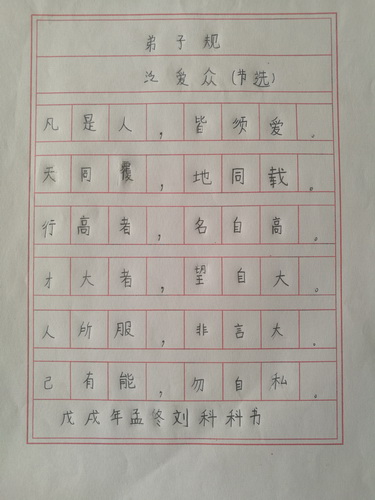 弟子规
泛爱众(节选)
凡是人,皆须爱。
天同覆,地同载。
行高者,名自高。
才大者,望自大。
人所服,非言大。
己有能,勿自私。
戊戌年孟冬刘科科书